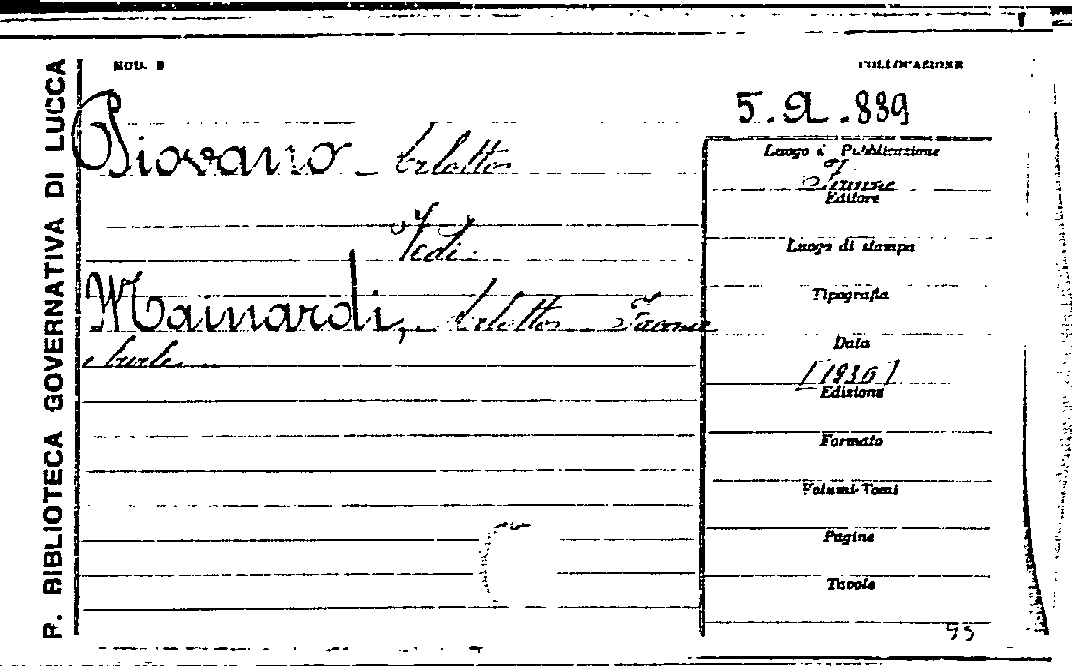 P. BIBLIOTECA GOVERNATIVA DI LUCCA
MOD. B
COLLOCAZIONE
5. .889
Piovano Arlotto
Vedi
Mainardi, Arlotto
e burle
Luogo di Pubblicazione
Firenze
Editore
Luogo di stampa
Tipografia
Data
[1930]
Edizione
Formato
Volumi-Tomi
Pagine
Tavole